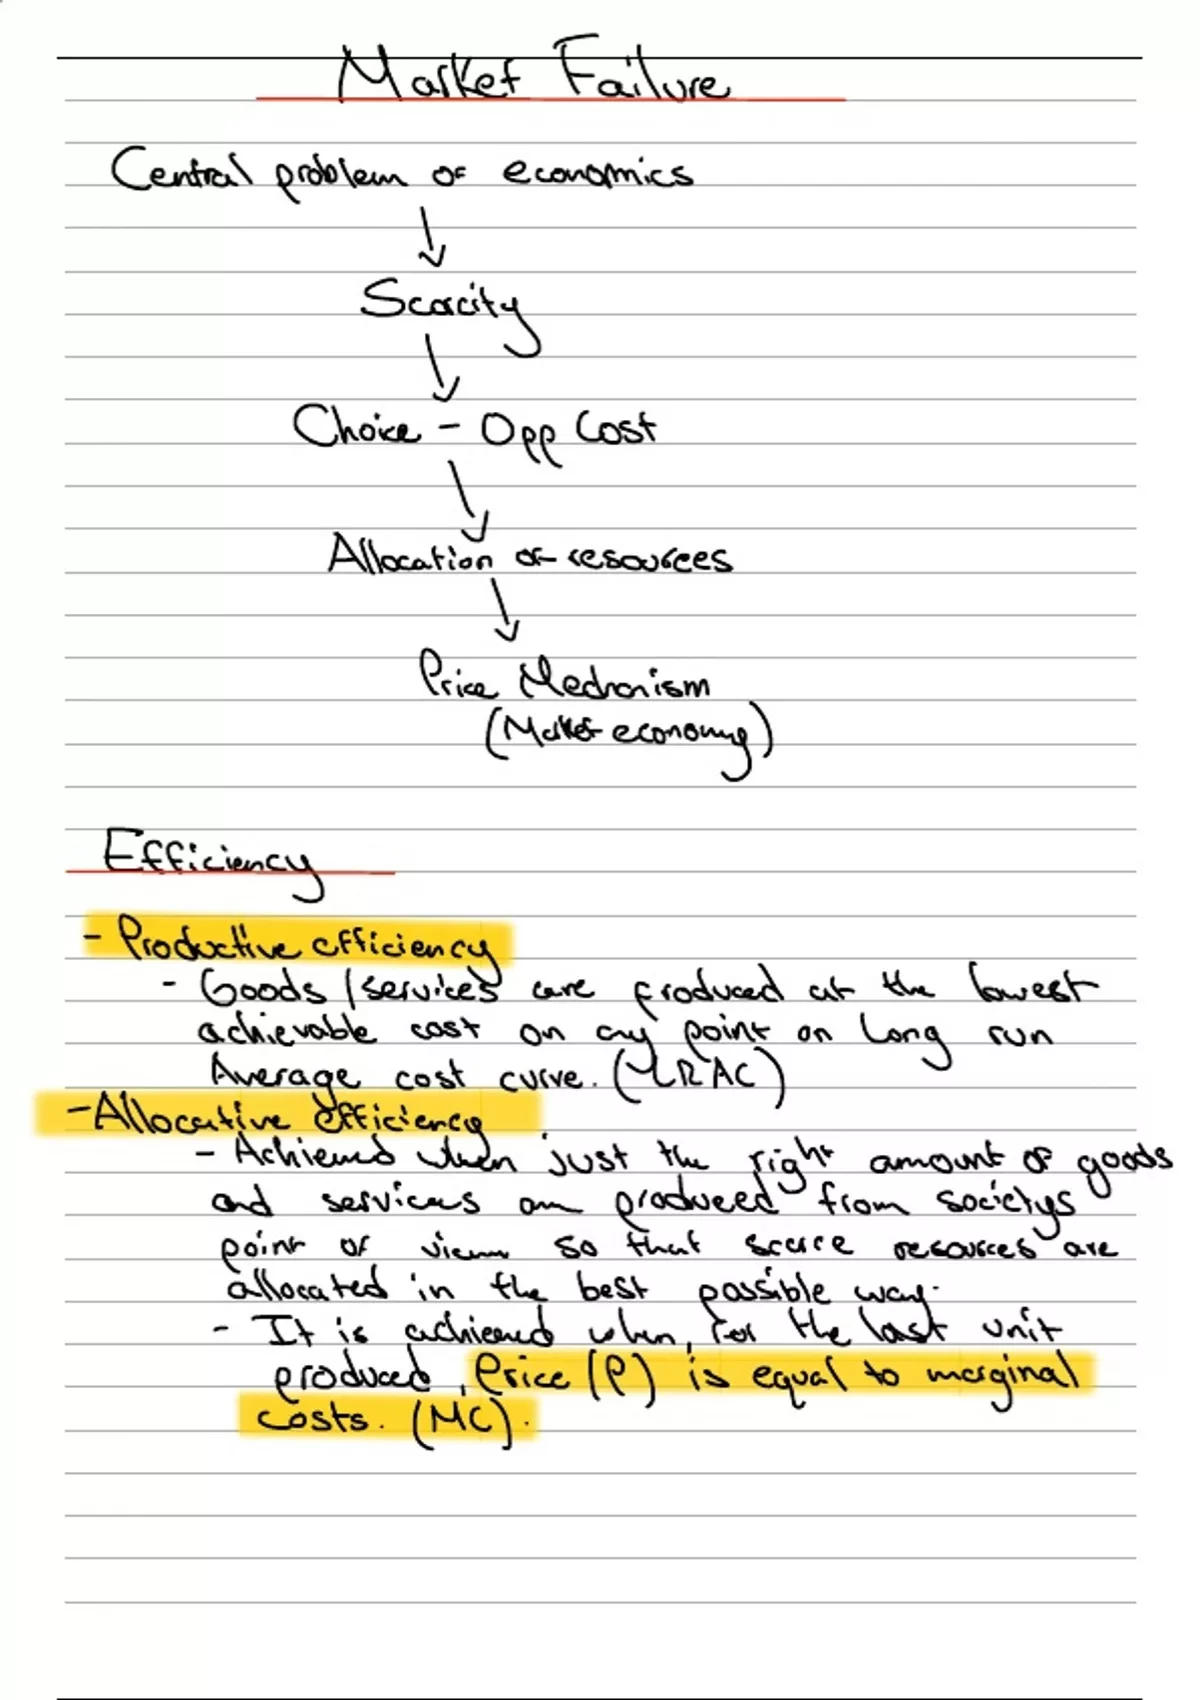 Market Failure
Central problem of economics
Scarcity
Choice - Opp Cost
Allocation of resources
Price Mechanism
(Market economy)
Efficiency
- Productive efficiency
- Goods/services are produced at the lowest
achievable cost on any point on long run
Average cost curve. (LRAC)
- Allocative efficiency
- Achieved when just the right amount of goods
and services are produced from societys
point of view so that scarce resources are
allocated in the best possible way.
- It is achieved when, for the last unit
produced, Price (P) is equal to marginal
costs. (MC).